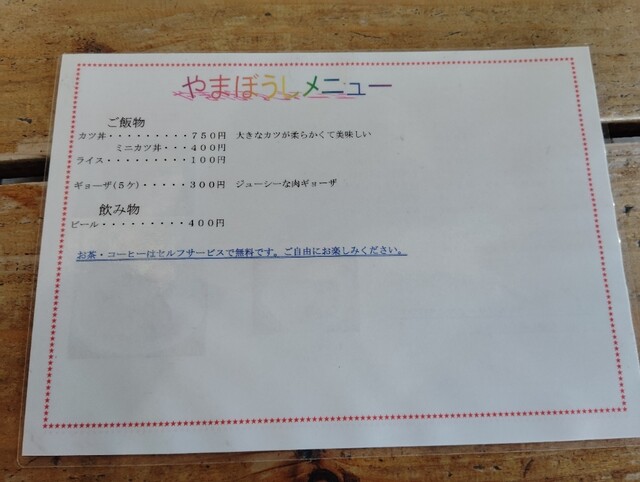 やまぼうしメニュー
ご飯物
カツ丼・・・・・・・・・７５０円　大きなカツが柔らかくて美味しい
ミニカツ丼・・・４００円
ライス・・・・・・・・・・１００円
ギョーザ(５ケ)・・・・・３００円　ジューシーな肉ギョーザ
飲み物
ビール・・・・・・・・・４００円
お茶・コーヒーはセルフサービスで無料です。ご自由にお楽しみください。